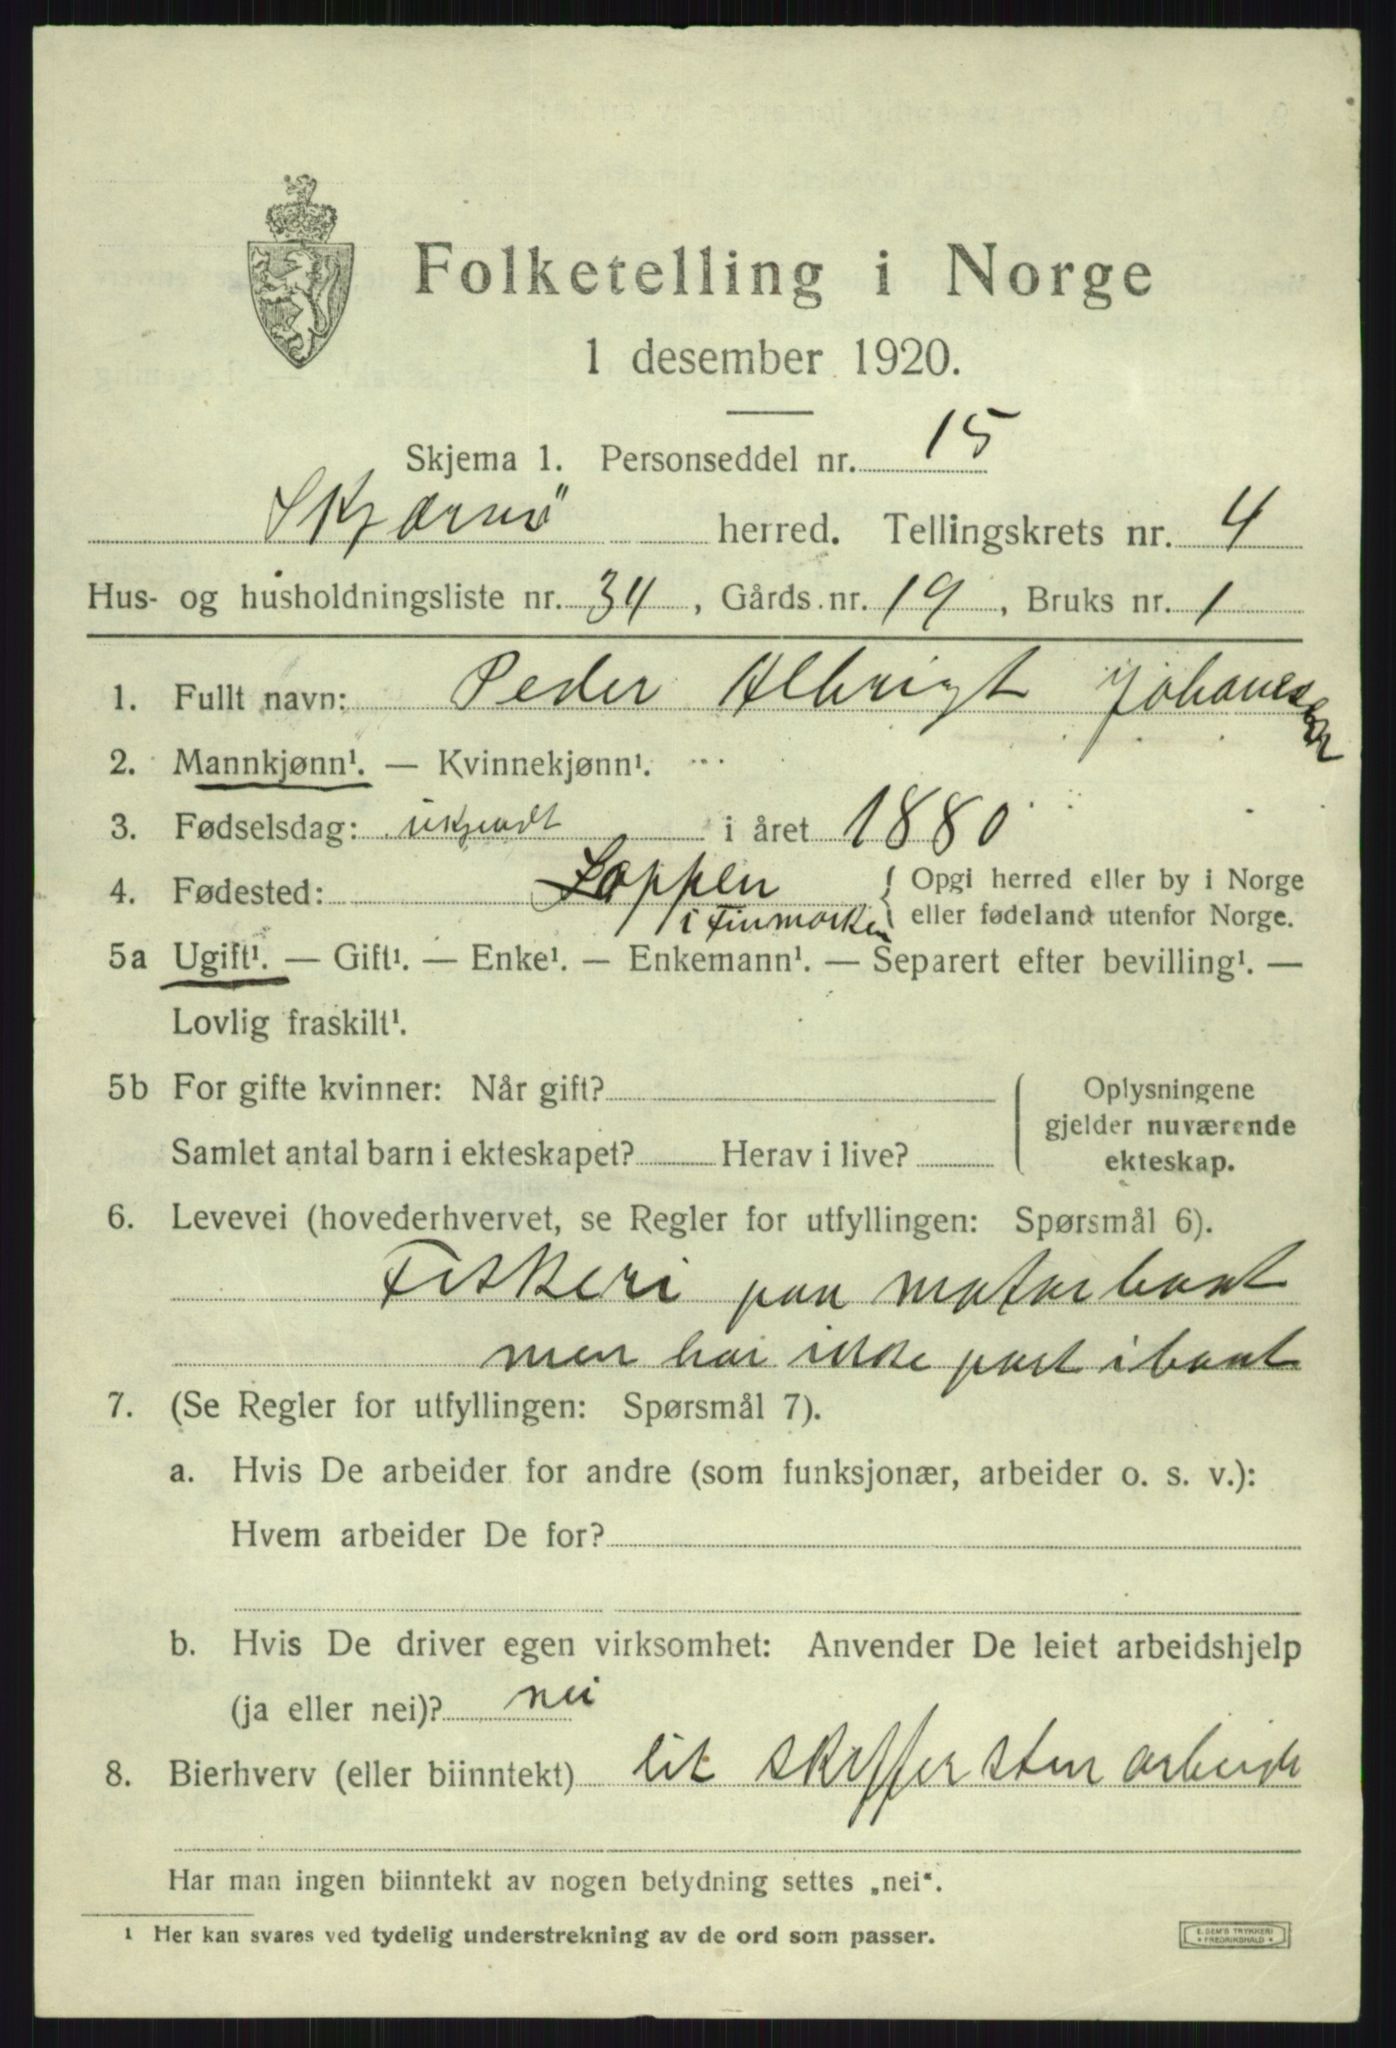 Folketelling i Norge
1 desember 1920.
Skjema 1. Personseddel nr. 15
Skjærvö herred. Tellingskrets nr. 4
Hus- og husholdningsliste nr. 34, Gårds nr. 19, Bruks nr. 1
1. Fullt navn: Peder Albrigt Johanesen
2. Mannkjønn¹. — Kvinnekjønn¹.
3. Fødselsdag: ukjendt i året 1880
4. Fødested: Loppen { Opgi herred eller by i Norge
i Finmarken eller fødeland utenfor Norge.
5a Ugift¹. — Gift¹. — Enke¹. — Enkemann¹. — Separert efter bevilling¹. —
Lovlig fraskilt¹.
5b For gifte kvinner: Når gift? Oplysningene
gjelder nuværende
Samlet antal barn i ekteskapet? Herav i live? ekteskap.
6. Levevei (hovederhvervet, se Regler for utfyllingen: Spørsmål 6).
Fiskeri paa motorbaat
men har ikke part i baat
7. (Se Regler for utfyllingen: Spørsmål 7).
a. Hvis De arbeider for andre (som funksjonær, arbeider o. s. v.):
Hvem arbeider De for?
b. Hvis De driver egen virksomhet: Anvender De leiet arbeidshjelp
(ja eller nei)? nei
8. Bierhverv (eller biinntekt) lit skiffersten arbeide
Har man ingen biinntekt av nogen betydning settes „nei“.
¹ Her kan svares ved tydelig understrekning av de ord som passer.
E. SEM'S TRYKKERI
FREDRIKSHALD